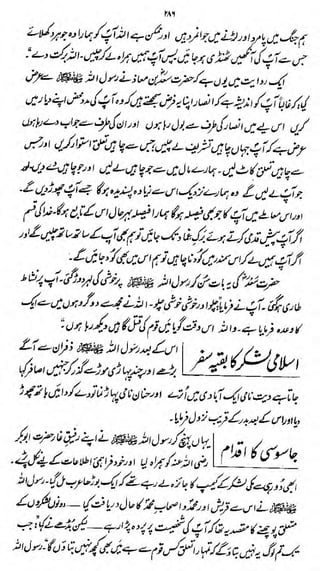 ۲۸۶
ہم جنگ میں پامرد اور لڑنے میں جوانمرد ہیں اور ممکن ہے اللہ آپ کو ہمارا وہ جوہر دکھلائے
جس سے آپ کی آنکھیں ٹھنڈی ہو جائیں پس آپ ہمیں ہمراہ لے کر چلیں۔ اللہ برکت دے۔"
ایک روایت میں یوں ہے کہ حضرت سعدؓ بن معاذ نے رسول اللہ ﷺ سے عرض
کیا کہ غالباً آپ کو اندیشہ ہے کہ انصار اپنا یہ فرض سمجھتے ہیں کہ وہ آپ کی مدد محض اپنے دیار میں
کریں اس لیے میں انصار کی طرف سے بول رہا ہوں اور ان کی طرف سے جواب دے رہا ہوں
عرض ہے کہ آپ جہاں چاہیں تشریف لے چلیں جس سے چاہیں تعلق استوار کریں اور جس
سے چاہیں تعلق کاٹ لیں۔ ہمارے مال میں سے جو چاہیں لے لیں اور جو چاہیں دے دیں اور
جو آپ لے لیں گے وہ ہمارے نزدیک اس سے زیادہ پسندیدہ ہو گا جسے آپ چھوڑ دیں گے۔
اور اس معاملے میں آپ کا جو بھی فیصلہ ہو گا ہمارا فیصلہ بہرحال اس کے تابع ہو گا۔ خدا کی قسم
اگر آپ پیش قدمی کرتے ہوئے برک غماد تک جائیں تو ہم بھی آپ کے ساتھ ساتھ چلیں گے اور
اگر آپ ہمیں لے کر اس سمندر میں کودنا چاہیں تو ہم اس میں بھی کود جائیں گے۔
حضرت سعدؓ کی یہ بات سن کر رسول اللہ ﷺ پر خوشی کی لہر دوڑ گئی۔ آپ پر نشاط
طاری ہو گئی۔ آپ نے فرمایا: چلو اور خوشی خوشی چلو۔ اللہ نے مجھ سے دو گروہوں میں سے ایک
کا وعدہ فرمایا ہے۔ واللہ اس وقت گویا میں قوم کی قتل گاہیں دیکھ رہا ہوں۔"
اسلامی لشکر کا بقیہ سفر
اس کے بعد رسول اللہ ﷺ ذفران سے آگے
بڑھے اور چند پہاڑی موڑ سے گذر کر جنہیں اصافر کہا
جاتا ہے دیت نامی ایک آبادی میں اترے اور حنان نامی پہاڑ نما تودے کو دائیں ہاتھ چھوڑ
دیا اور اس کے بعد بدر کے قریب نزول فرمایا۔
جاسوسی کا اقدام
یہاں پہنچ کر رسول اللہ ﷺ نے اپنے رفیق غار حضرت ابوبکر
رضی اللہ عنہ کو ہمراہ لیا اور خود فراہمی اطلاعات کے لیے نکل پڑے۔
ابھی دور ہی سے مکی لشکر کے کیمپ کا جائزہ لے رہے تھے کہ ایک بوڑھا عرب مل گیا۔ رسول اللہ
ﷺ نے اس سے قریش اور محمد و اصحاب محمد کا حال دریافت کیا ــ دونوں لشکروں کے
متعلق پوچھنے کا مقصد یہ تھا کہ آپ کی شخصیت پر پردہ پڑا رہے ــ لیکن بڈھے نے کہا: "جب
تک تم لوگ یہ نہیں بتاؤ گے کہ تمہارا تعلق کس قوم سے ہے میں بھی کچھ نہیں بتاؤں گا"۔ رسول اللہ